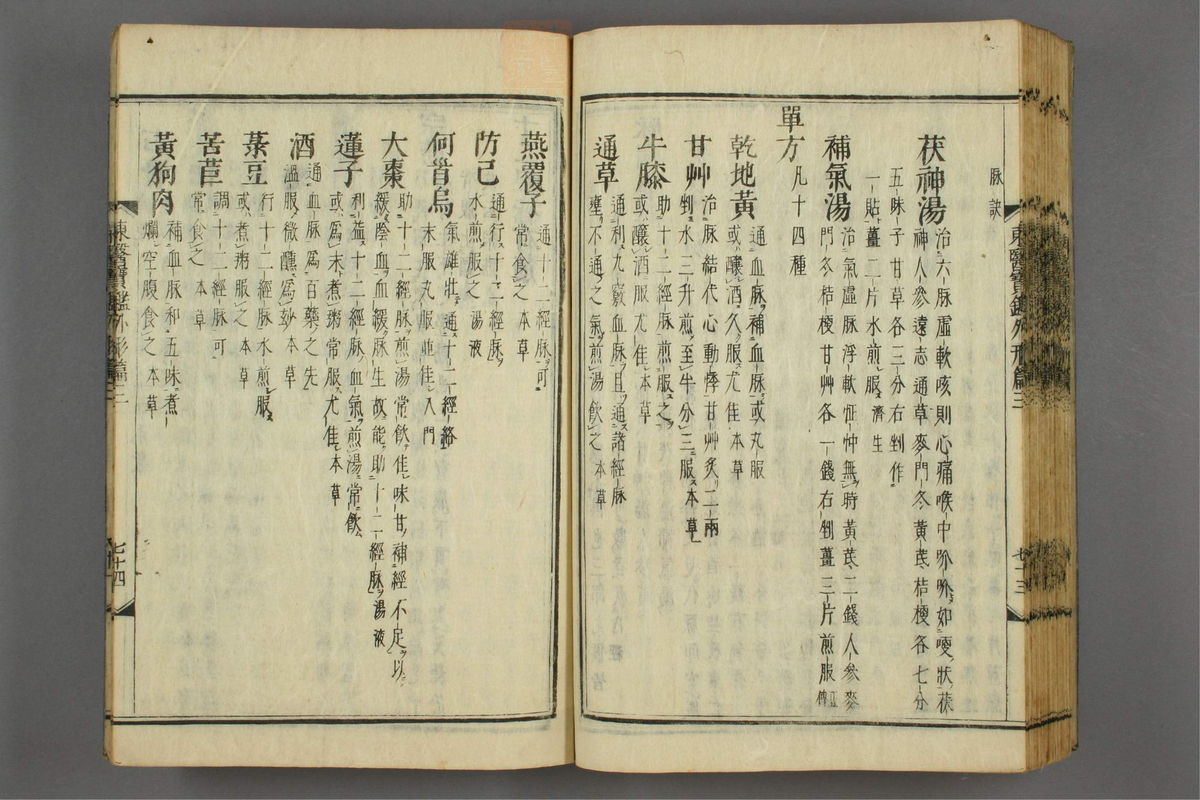 脉訣
茯神湯
治六脉虛軟咳則心痛喉中吤吤如哽狀茯
神人參遠志通草麥門冬黃芪桔梗各七分
五味子甘草各三分右剉作
一貼薑二片水煎服濟生
補氣湯
治氣虛脉浮軟怔忡無時黃芪二錢人參麥
門冬桔梗甘艸各一錢右剉薑三片煎服正傳
單方
凡十四種
乾地黃
通血脉補血脉或丸服
或釀酒久服尤佳本草
甘艸
治脉結代心動悸甘艸炙二兩
剉水三升煎至半分三服本草
牛膝
助十二經脉煎服之
或釀酒服尤佳本草
通草
通利九竅血脉且通諸經脉
壅不通之氣煎湯飮之本草
東醫寶鑑外形篇三
七十三
燕覆子
通十二經脉可
常食之本草
防己
通行十二經脉
水煎服之湯液
何首烏
氣雄壯通十二經絡
末服丸服並佳入門
大棗
助十二經脉煎湯常飮佳味甘補經不足以
緩陰血血緩脉生故能助十二經脉湯液
蓮子
利益十二經脉血氣煎湯常飮
或爲末煮粥常服尤佳本草
酒
通血脉爲百藥之先
溫服微醺爲妙本草
菉豆
行十二經脉水煎服
或煮粥服之本草
苦苣
調十二經脉可
常食之本草
黃狗肉
補血脉和五味煮
爛空腹食之本草
東醫寶鑑外形篇三
七十四